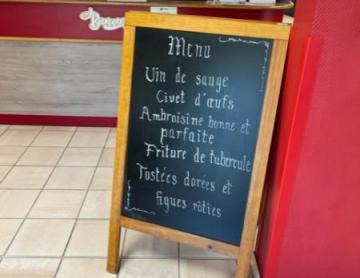 Menu
Vin de sauge
Civet d'œufs
Ambroisine bonne et
parfaite
Friture de tubercule
Tostées dorées et
figues rôties